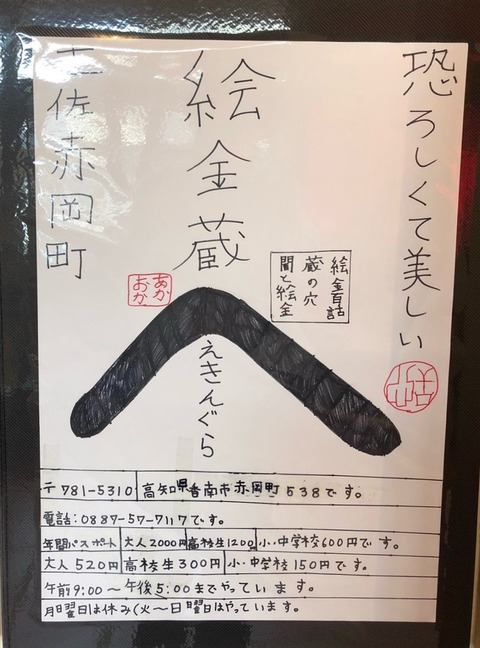 恐ろしくて美しい
絵金蔵
土佐赤岡町
絵金百話
蔵の穴
闇と絵金
あか
おか
えきんぐら
〒781-5310 高知県香南市赤岡町538です。
電話:0887-57-7117です。
年間パスポート 大人2000円 高校生1200 小・中学校600円です。
大人520円 高校生300円 小・中学校150円です。
午前9:00〜午後5:00までやっています。
月曜日は休み(火〜日曜日はやっています。